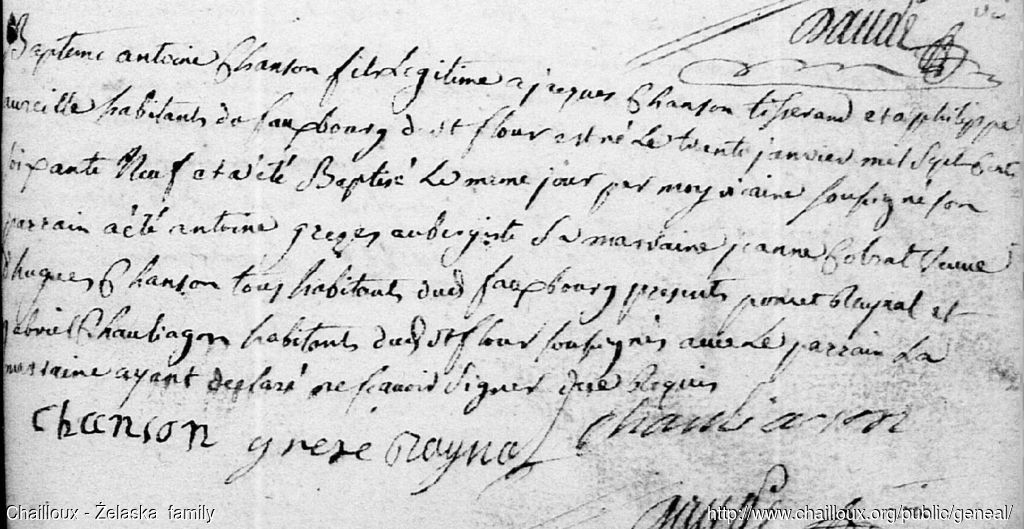 Daude
Bapteme antoine Chanson fils Legitime a jacques Chanson tisserand et a philippe
aureille habitants du fauxbourg de st flour est né Le trente janvier mil Sept Cents
soixante Neuf et a été Baptisé Le meme jour par moy vicaire soussigné son
parrain a été antoine grezes aubergiste Sa marraine jeanne Cobrat Veuve
d'hugues Chanson tous habitants dud fauxbourg presents Raynal et
gabriel Chauliagon habitants dud st flour soussignés avec Le parrain La
marraine ayant declaré ne scavoir Signer de ce Requis
Chanson greze Raynal chauliagon
Daude
Chailloux - Żelaska family
http://www.chailloux.org/public/geneal/